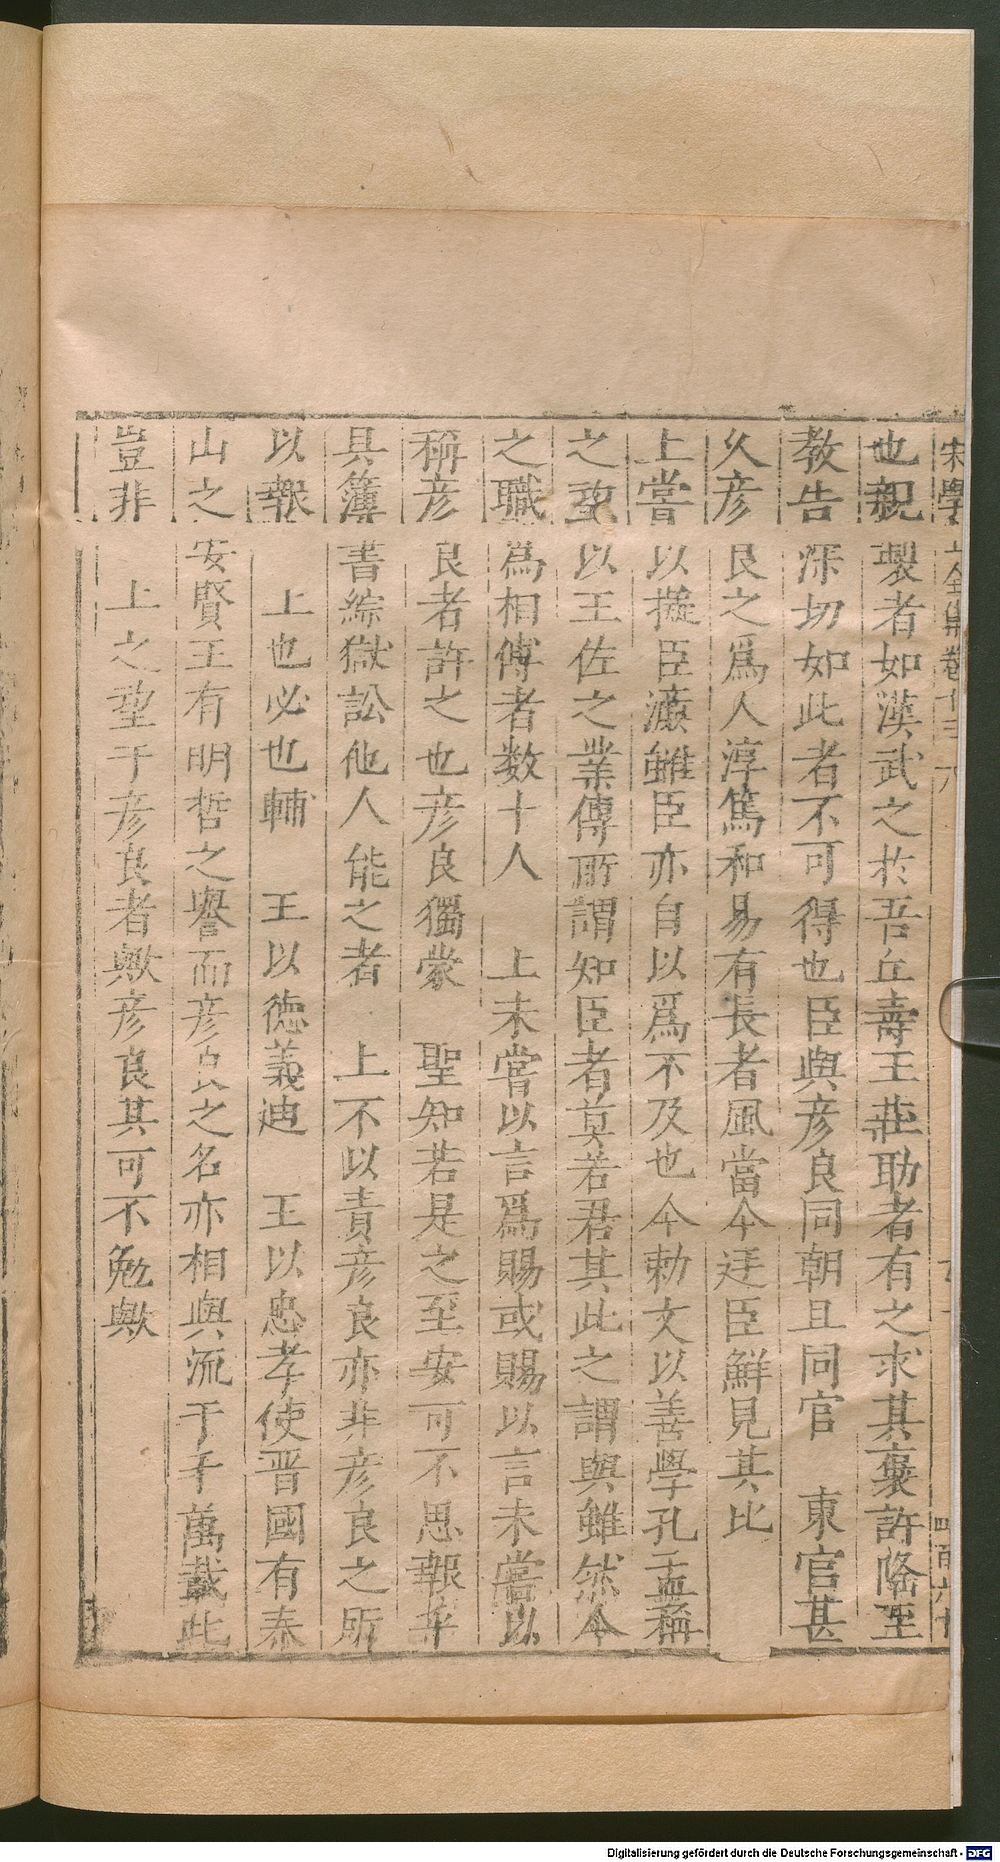 宋學士全集卷十三
也親製者如漢武之於吾丘壽王莊助者有之求其褒許隆至
教告深切如此者不可得也臣與彦良同朝且同官　東宫甚
久彦良之爲人淳篤和易有長者風當今廷臣鮮見其比
上嘗以擬臣濂雖臣亦自以爲不及也今勅文以善學孔孟稱
之夐以王佐之業傳所謂知臣者莫若君其此之謂與雖然今
之職爲相傅者數十人　上未嘗以言爲賜或賜以言未嘗以
稱彦良者許之也彦良獨蒙　聖知若是之至安可不思報乎
具簿書綜獄訟他人能之者　上不以責彦良亦非彦良之所
以報　上也必也輔　王以德義迪　王以忠孝使晋國有泰
山之安賢王有明哲之譽而彦良之名亦相與流于千萬載此
豈非　上之望于彦良者歟彦良其可不勉歟
Digitalisierung gefördert durch die Deutsche Forschungsgemeinschaft - DFG